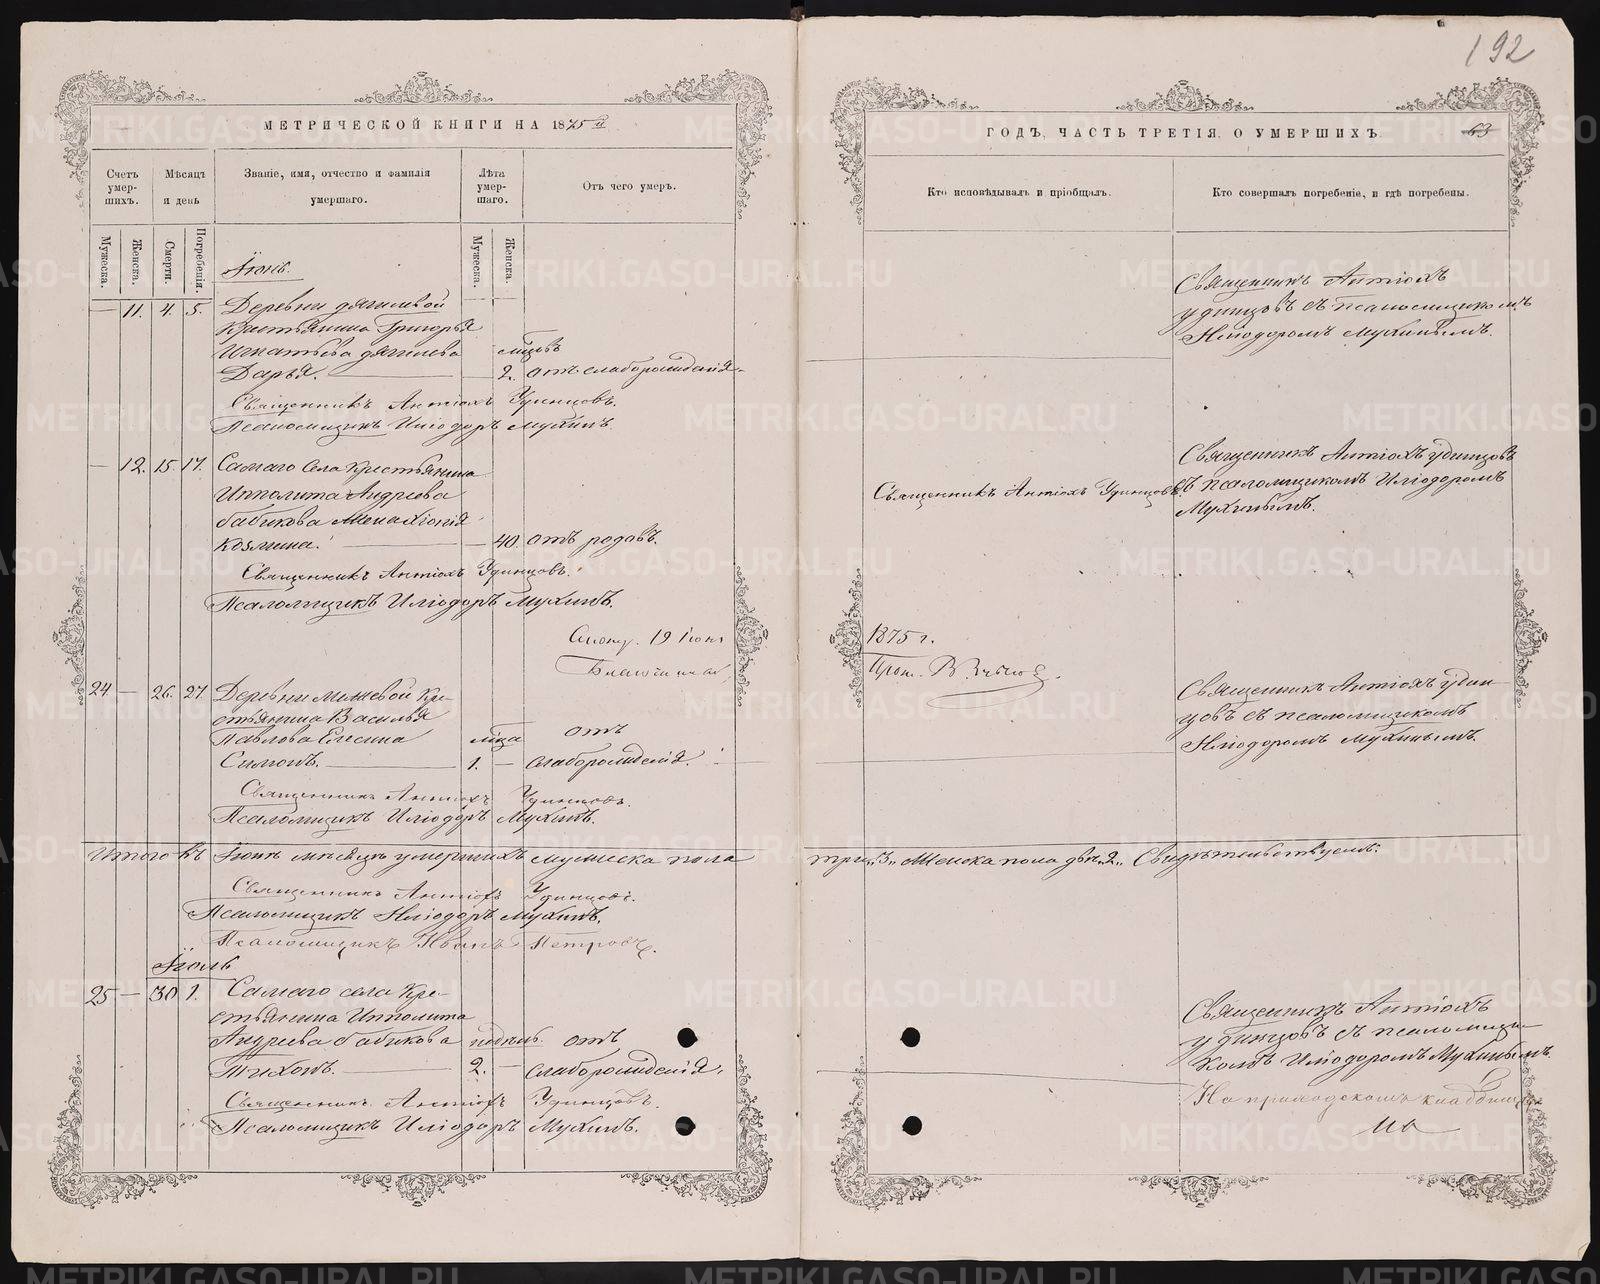 192
МЕТРИЧЕСКОЙ КНИГИ НА 1875 й
Счетъ умер-шихъ.
Мѣсяцъ и день
Званіе, имя, отчество и фамилія умершаго.
Лѣта умер-шаго.
Отъ чего умеръ.
Мужеска.
Женска.
Смерти.
Погребенія.
Мужеска.
Женска.
Іюнь.
— 11. 4. 5. Деревни
Крестьянина Григорья
Игнатьева
Дарья. — 2. отъ слаборожденія.
Священникъ Антіохъ Удинцовъ.
Псаломщикъ Иліодоръ Мухинъ.
— 12. 15. 17. Самаго села крестьянина
Ипполита Андреева
бабикова жена Хіонія
Козмина. — 40. отъ родовъ.
Священникъ Антіохъ Удинцовъ.
Псаломщикъ Иліодоръ Мухинъ.
19 Іюня
24. — 26. 27. Деревни Кре-
стьянина Василья
Павлова
Симонъ. — 1. — слаборожденія.
отъ
Священникъ Антіохъ Удинцовъ.
Псаломщикъ Иліодоръ Мухинъ.
Итого въ Іюнѣ мѣсяцѣ умершихъ мужеска пола
Священникъ Антіохъ Удинцовъ.
Псаломщикъ Иліодоръ Мухинъ.
Псаломщикъ Иванъ Петровъ.
Іюль
25 — 30 1. Самаго села кре-
стьянина Ипполита
Андреева бабикова недѣль отъ
Тихонъ. — 2. — слаборожденія.
Священникъ Антіохъ Удинцовъ.
Псаломщикъ Иліодоръ Мухинъ.
ГОДЪ, ЧАСТЬ ТРЕТІЯ, О УМЕРШИХЪ.
63
Кто исповѣдывалъ и пріобщалъ.
Кто совершалъ погребеніе, и гдѣ погребены.
Священникъ Антіохъ
удинцовъ съ псаломщикомъ
Иліодоромъ Мухинымъ.
Священникъ Антіохъ Удинцовъ.
Священникъ Антіохъ удинцовъ
съ псаломщикомъ Иліодоромъ
Мухинымъ.
1875 г.
Прот.
Священникъ Антіохъ удин-
цовъ съ псаломщикомъ
Иліодоромъ Мухинымъ.
три „3„ Женска пола двѣ „2„ Свидѣтельствуемъ:
Священникъ Антіохъ
удинцовъ съ псаломщи-
комъ Иліодоромъ Мухинымъ.
На приходскомъ кладбищѣ
METRIKI.GASO-URAL.RU